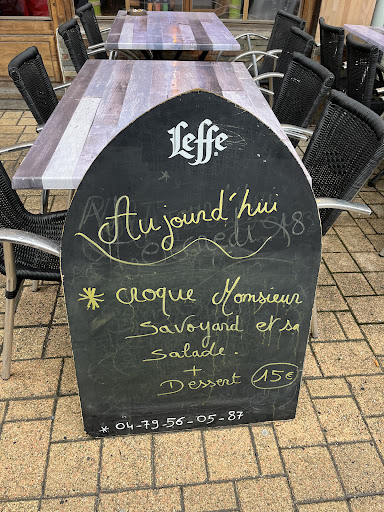 Leffe
Aujourd'hui
* croque Monsieur
Savoyard et sa
salade.
+
Dessert 15€
* 04-79-56-05-87